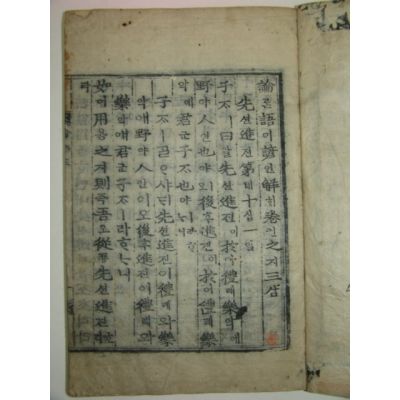 論론語어諺언解ᄒᆡ卷권之지三삼
先션進진第뎨十십一일
子ᄌᆞㅣ曰왈先션進진이於어禮례樂악애
野야人인也야ㅣ오後후進진이於어禮례樂
악애君군子ᄌᆞ也야ㅣ라ᄒᆞᄂᆞ니
子ᄌᆞㅣᄀᆞᆯᄋᆞ샤ᄃᆡ先션進진이禮례와
樂악애野야人인이오後후進진이禮례와
樂악애君군子ᄌᆞㅣ라ᄒᆞᄂᆞ니
如여用용之지則즉吾오從죵先션進진호리
라